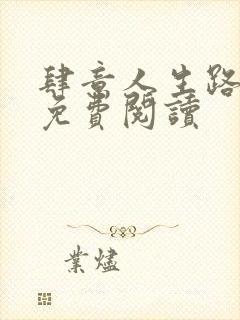 肆意人生路
免費閱讀
業燼